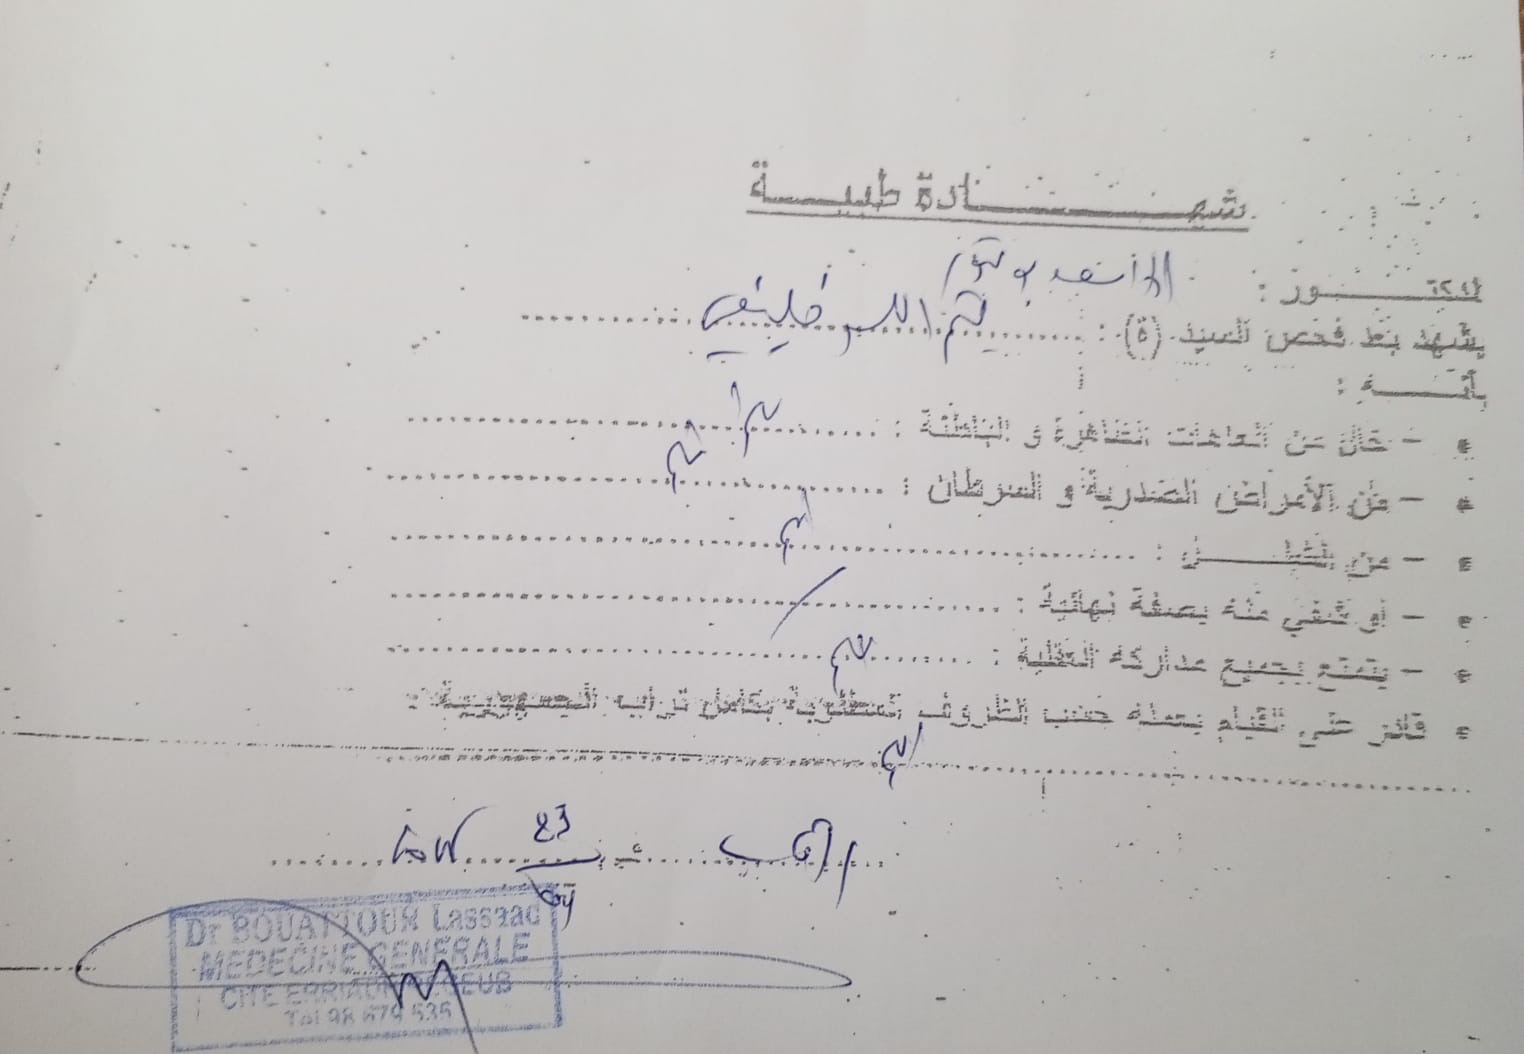 شهـــــادة طبيـــة
الدكتـــــور : الأسعد بوعتور
يشهد بعد فحص السيد (ة) :
بأنـــــه :
- خال من العاهات الظاهرة و الباطنة : نعم
- من الأمراض الصدرية و السرطان : نعم
- من الشلـــــل : نعم
- أو شفي منه بصفة نهائية : /
- يتمتع بجميع مداركه العقلية : نعم
قادر على القيام بعمله حسب الظروف المطلوبة بكامل تراب الجمهورية :
نعم
الرقاب في 23
Dr BOUATTOUR Lassaad
MEDECINE GENERALE
CITE ERRIADH REGUEB
Tel 98 679 535